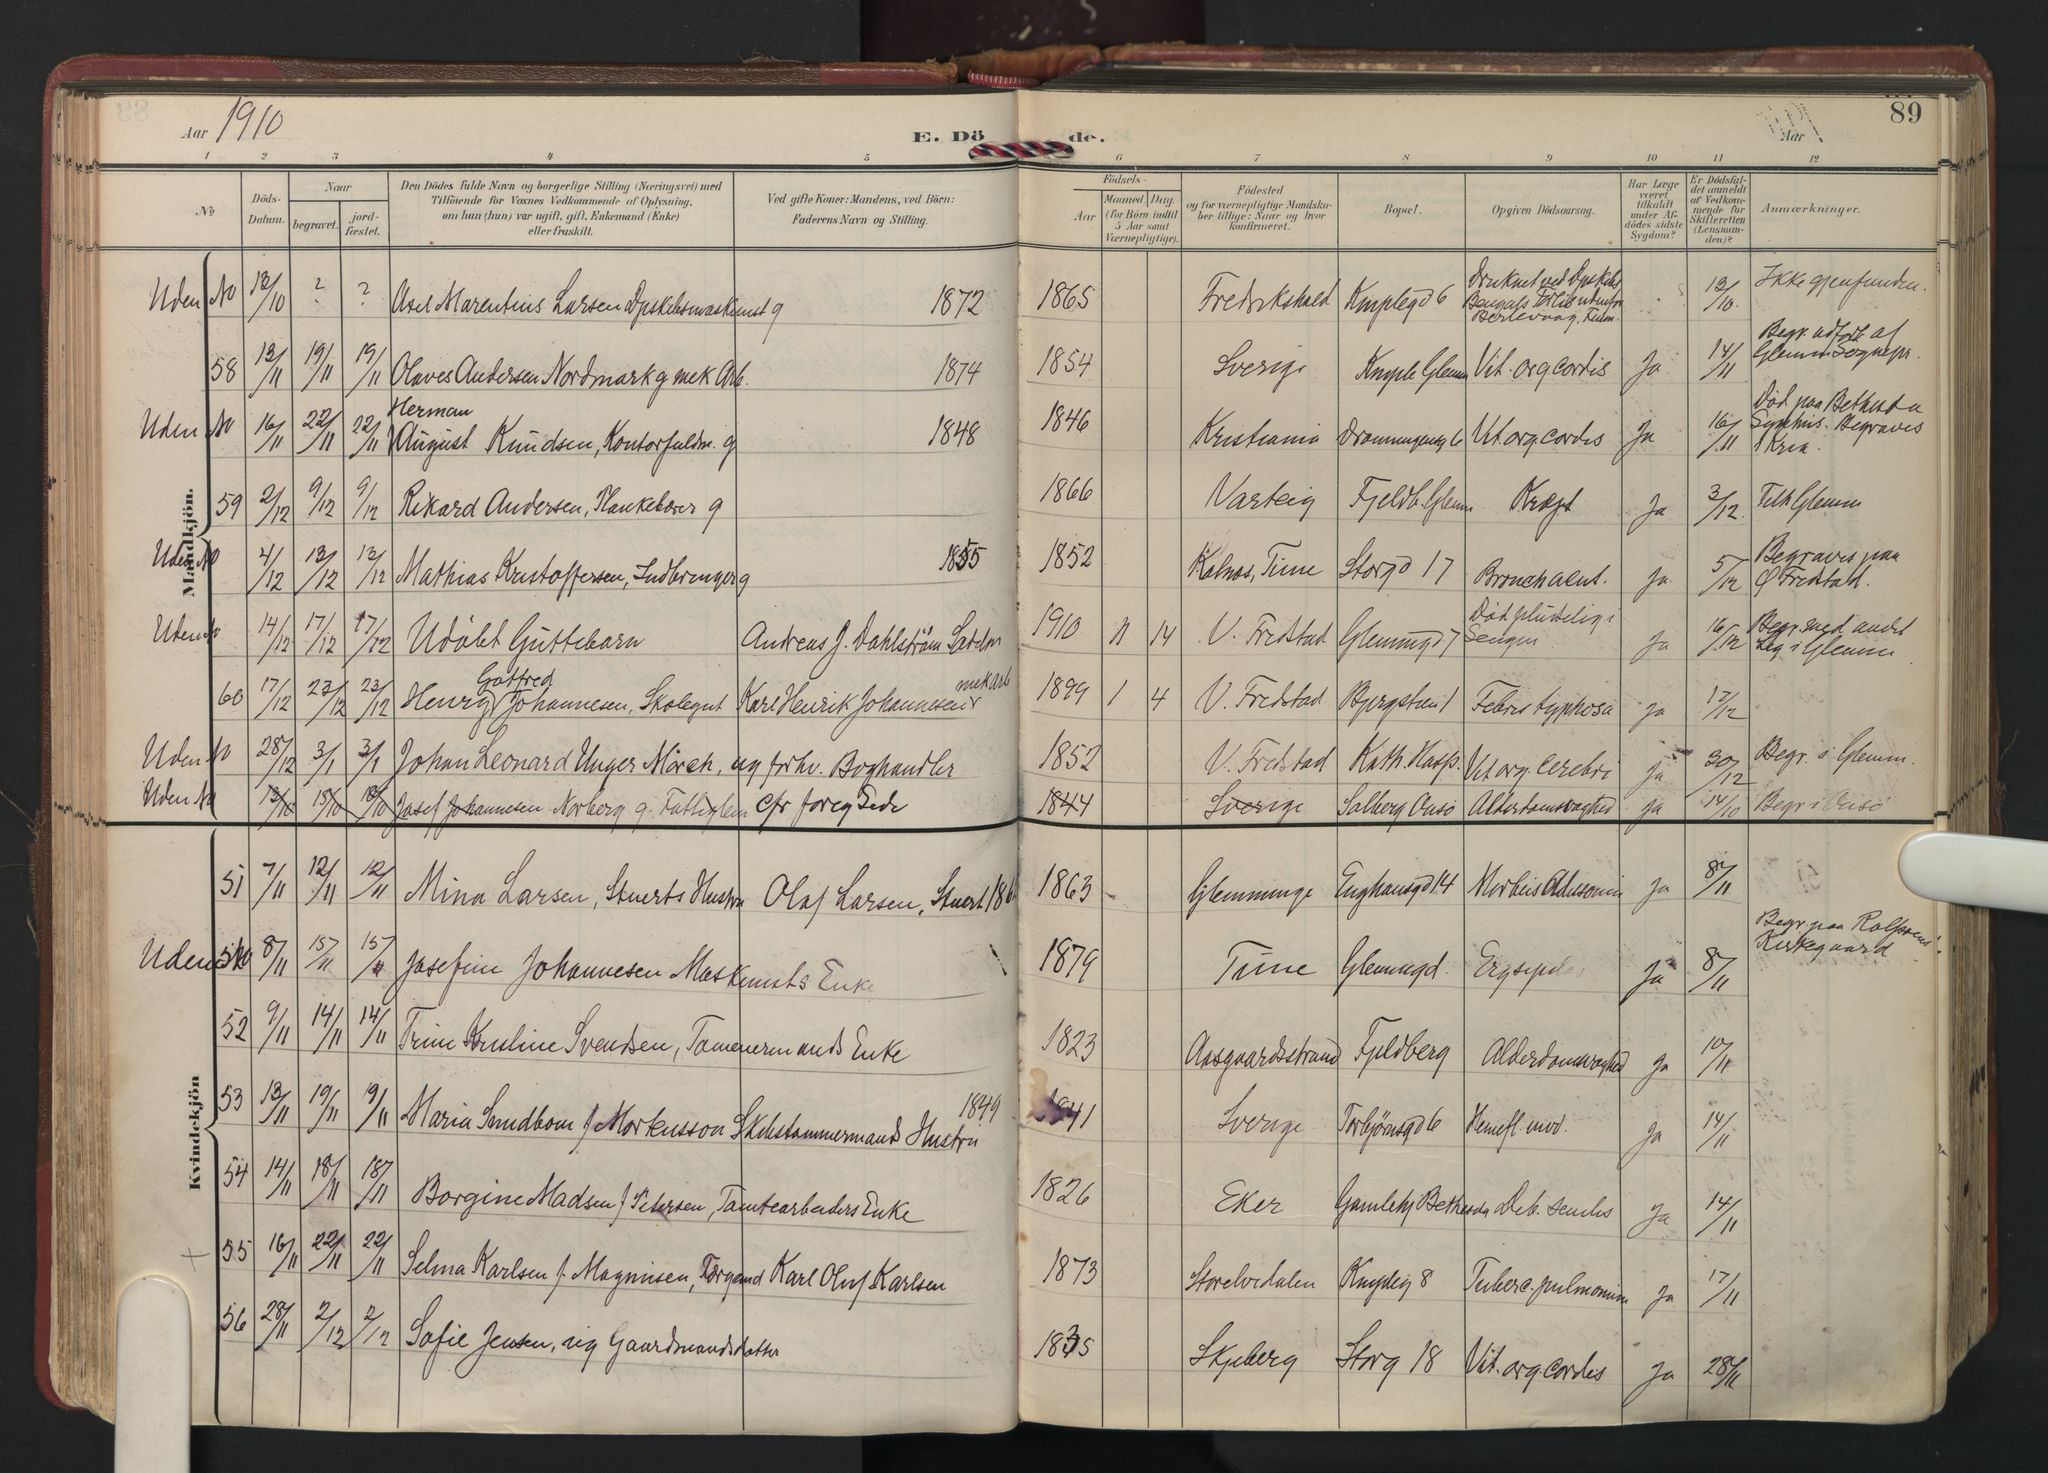 Aar 1910
E. Dö de.
Aar
89
1 2 3 4 5 6 7 8 9 10 11 12
No
Döds-Datum.
Naar
begravet.
jord-fæstet.
Den Dödes fulde Navn og borgerlige Stilling (Næringsvei) med
Tilföiende for Voxnes Vedkommende af Oplysning,
om han (hun) var ugift, gift, Enkemand (Enke)
eller fraskilt.
Ved gifte Koner: Mandens, ved Börn:
Faderens Navn og Stilling.
Födsels-
Aar
Maaned Dag
(for Börn indtil
5 Aar samt
Værnepligtige).
Födested
og for værnepligtige Mandska-
ber tillige: Naar og hvor
konfirmeret.
Bopæl.
Opgiven Dödsaarsag.
Har Læge
været
tilkaldt
under Af-
dödes sidste
Sygdom?
Er Dödsfal-
det anmeldt
af Vedkom-
mende for
Skifteretten
(Lensman-
den)?
Anmærkninger.
Mandkjön.
Uden No 13/10 ? ? Axel Marentius Larsen Dpskibsmaskinist g 1872 1865 Fredrikshald Knipleg 6 Druknet ved Dpskibs Bengals Forlis udenfor Berlevaag, Finm. 13/10. Ikke gjenfunden.
58 13/11 19/11 19/11 Olaves Andersen Nordmark g mek Arb. 1874 1854 Sverige Kniple Glemm Vit. org cordis Ja 14/11 Begr udført af Glemm Sognepr.
Uden No 16/11 22/11 22/11 Herman August Knudsen, Kontorfuldm. g 1848 1846 Kristiania Dronningensg 6 Vit. org. cordis Ja 16/11 Død paa Bethesda Begraves i Kria.
59 2/12 9/12 9/12 Rikard Andersen, Plankebærer g 1866 Varteig Fjeldb. Glemm Kræft Ja 3/12 Tilh Glemm
Uden No 4/12 13/12 13/12 Mathias Kristoffersen, Indbringer g 1855 1852 Kalnes, Tune Storgd 17 Bronch acut. Ja 5/12 Begraves paa Ø Fredstad.
Uden No 14/12 17/12 17/12 Udöbt Guttebarn Andreas J. Dahlström 1910 11 14 V. Fredstad Glemmgd 7 Død pludselig i Sengen Ja 16/12 Begr. med andet Lig i Glemm
60 17/12 23/12 23/12 Henry Gotfred Johannesen, Skolegut Karl Henrik Johannesen mek arb 1899 1 4 V. Fredstad Bjergstien 1 Febris typhosa Ja 17/12
Uden No 28/12 3/1 3/1 Johan Leonard Unger Mörch, ug forhv. Boghandler 1852 V. Fredstad Kath. Hosp. Vit org. cerebri ja 30/12 Begr. i Glemm.
Uden No 13/10 15/10 15/10 Josef Johannesen Norberg g. Fattiglem cfr foreg Side 1844 Sverige Solberg Onsö Alderdomssvaghed ja 14/10 Begr i Onsö
Kvindekjön
51 7/11 12/11 12/11 Mina Larsen, Stuerts Hustru Olaf Larsen, Stuert 186 1863 Glemminge Enghausgd 14 Morbus Addisonii Ja 8/11
Uden No 8/11 15/11 15/11 Josefine Johannesen Maskinists Enke 1879 Tune Glemmgd. Ja 8/11 Begr. paa Rolfsens Kirkegaard
52 9/11 14/11 14/11 Trine Kristine Svendsen, Tømmermands Enke 1823 Aasgaardsstrand Fjeldberg Alderdomssvaghed Ja 10/11
53 13/11 19/11 19/11 Maria Sundbom f Morkusson Skibstømmermands Hustru 1849 1841 Sverige Torbjörnsgd 6 Ja 14/11
54 14/11 18/11 18/11 Borgine Madsen f Petersen, Tomtearbeiders Enke 1826 Eker Gamlehj Bethesda Deb. senilis Ja 14/11
55 16/11 22/11 22/11 Selma Karlsen f Magnusen, Karl Oluf Karlsen 1873 Storelvedalen Knipleg 8 Tuberc. pulmonum Ja 17/11
56 28/11 2/12 2/12 Sofie Jensen, ug Gaardmandsdatter 1835 Skjeberg Storg 18 Vit. org. cordis Ja 28/11